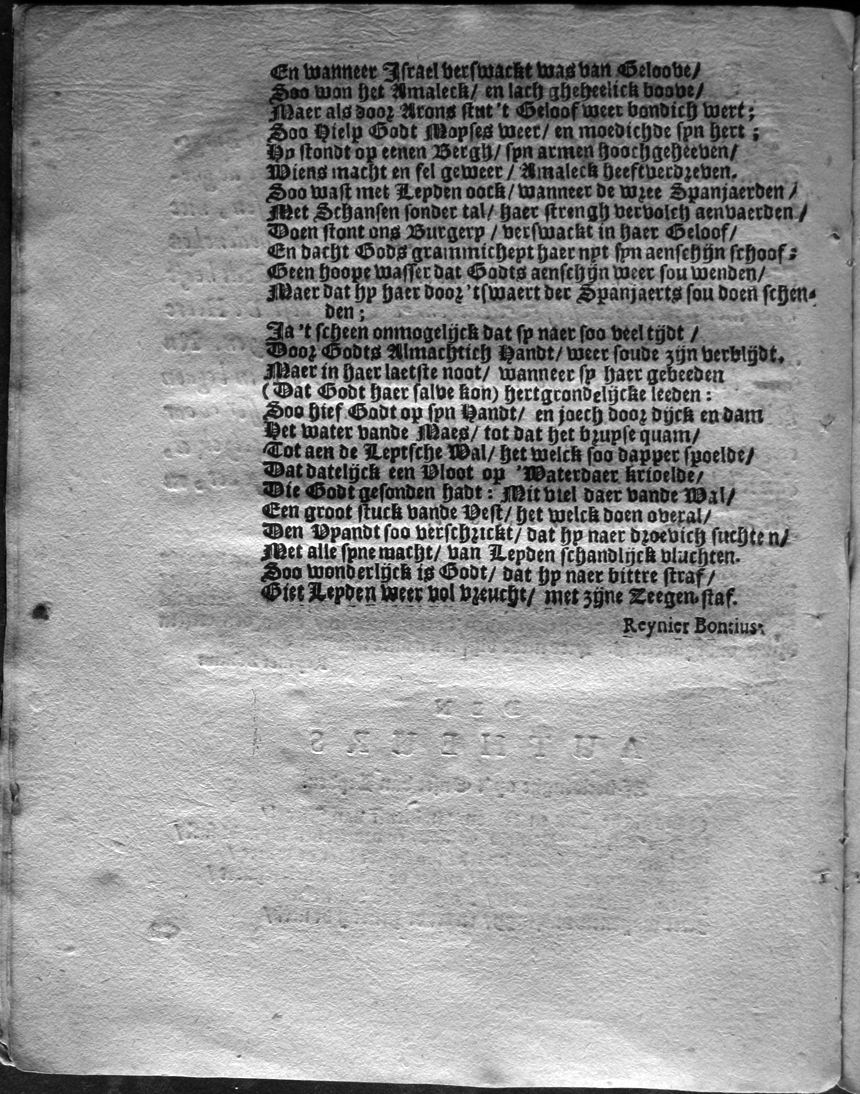 En wanneer Israel verswackt was van Geloove/
Soo won het Amaleck/ en lach gheheelick voove/
Maer als door Arons stut 't Geloof weer bondich wert;
Soo Hielp Godt Moyses weer/ en moedichde syn hert ;
Hy stondt op eenen Bergh/ syn armen hoochgeheeven/
Wiens macht en fel geweer/ Amaleck heeftverdreven.
Soo wast met Leyden oock/ wanneer de wree Spanjaerden /
Met Schansen sonder tal/ haer strengh vervolch aenvaerden/
Doen stont ons Burgery / verswackt in haer Geloof/
En dacht Gods grammicheyt haer nyt syn aenschijn schoof:
Geen hoope wasser dat Godts aenschijn weer sou wenden/
Maer dat hy haer door 'tswaert der Spanjaerts sou doen schen-
den ;
Ja 't scheen onmogelijck dat sy naer soo veel tijdt /
Door Godts Almachtich Handt/ weer soude zijn verblijdt.
Maer in haer laetste noot/ wanneer sy haer gebeeden
(Dat Godt haer salve kon) hertgrondelijcke leeden:
Soo hief Godt op syn Handt/ en joech door dijck en dam
Het water vande Maes/ tot dat het bruyse quam/
Tot aen de Leytsche Wal/ het welck soo dapper spoelde/
Dat datelijck een Vloot op 'Waterdaer krioelde/
Die Godt gesonden hadt: Mit viel daer vande Wal/
Een groot stuck vande Vest/ het welck doen overal/
Den Vyandt soo verschrickt/ dat hy naer droevich suchten/
Met alle syne macht/ van Leyden schandlijck vluchten.
Soo wonderlijck is Godt/ dat hy naer bittre straf/
Giet Leyden weer vol vreucht/ met zijne Zeegen-staf.
Reynier Bontius.
DEN
AUTHEURS